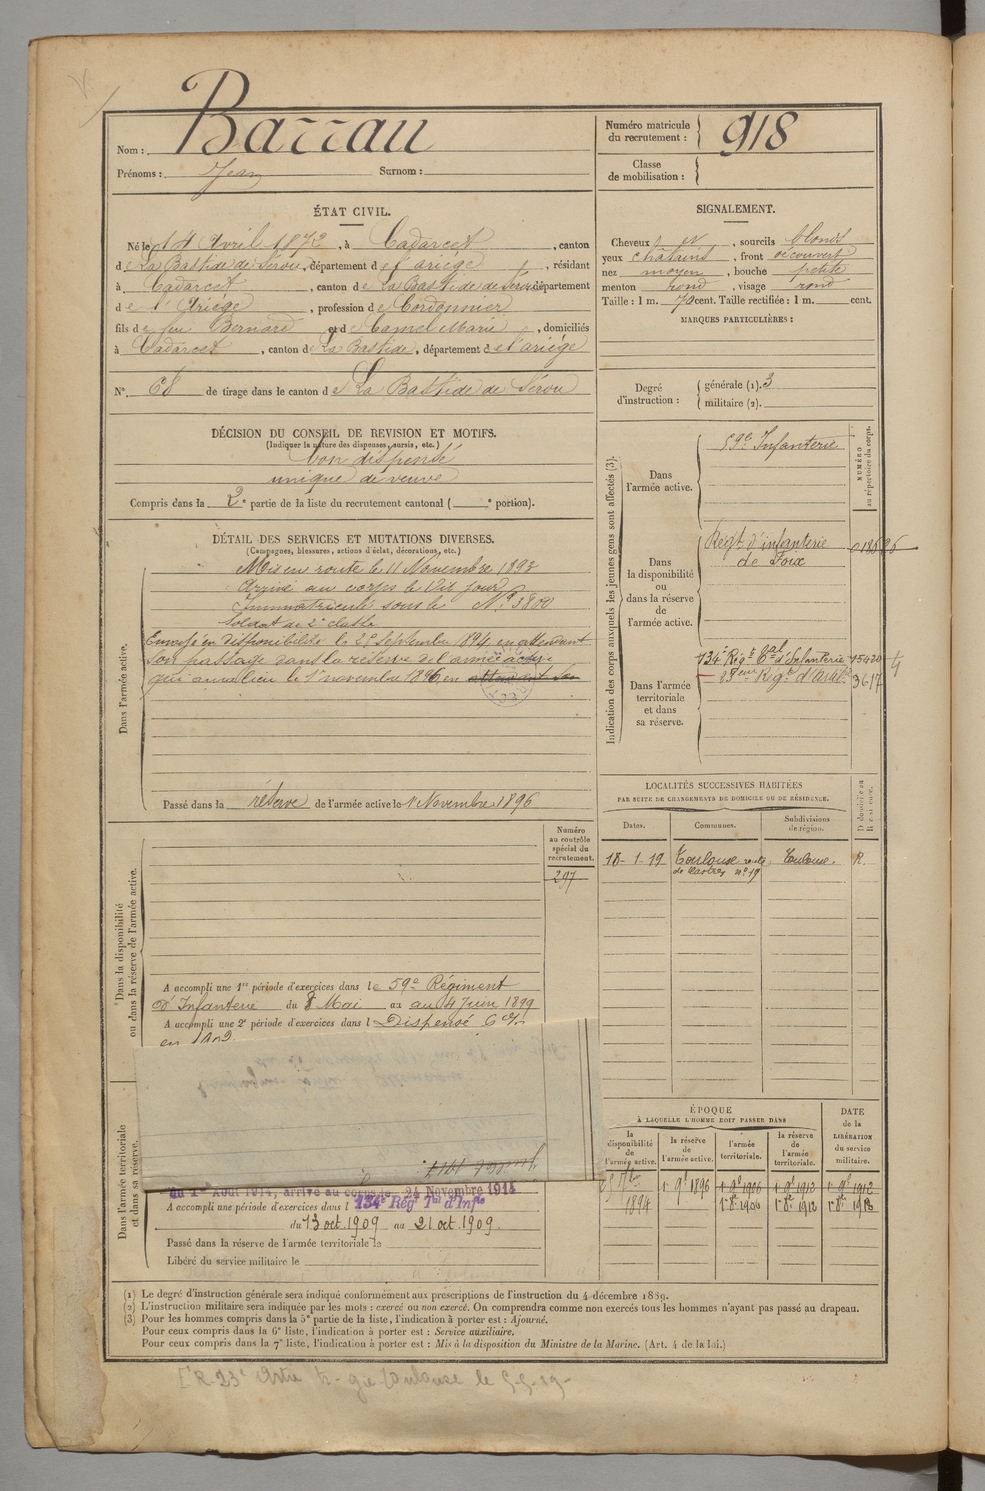 Nom : Barrau
Prénoms : Jean Surnom :
Numéro matricule du recrutement : 918
Classe de mobilisation :
ÉTAT CIVIL.
Né le 14 Avril 1872, à Cadarcet, canton
de La Bastide de Sérou, département de l'ariège, résidant
à Cadarcet, canton de La Bastide de Sérou, département
de l'Ariège, profession de Cordonnier
fils de feu Bernard et de Camel Marie, domiciliés
à Cadarcet, canton de La Bastide, département de l'ariège
N° 68 de tirage dans le canton de La Bastide de Sérou
SIGNALEMENT.
Cheveux et, sourcils blonds
yeux châtains, front découvert
nez moyen, bouche petite
menton rond, visage rond
Taille : 1 m. 70 cent. Taille rectifiée : 1 m. cent.
MARQUES PARTICULIÈRES :
Degré d'instruction : générale (1). 3
militaire (2).
DÉCISION DU CONSEIL DE REVISION ET MOTIFS.
(Indiquer la nature des dispenses, sursis, etc.)
bon dispensé
unique de veuve
Compris dans la 2e partie de la liste du recrutement cantonal ( e portion).
DÉTAIL DES SERVICES ET MUTATIONS DIVERSES.
(Campagnes, blessures, actions d'éclat, décorations, etc.)
Dans l'armée active.
Mis en route le 11 Novembre 1893
Arrivé au corps le Dit jour
Immatriculé sous le N° 3800
Soldat de 2e classe
Envoyé en disponibilité le 25 Septembre 1894, en attendant
son passage dans la réserve de l'armée active
qui aura lieu le 1er novembre 1896, en attendant son
Passé dans la réserve de l'armée active le 1er Novembre 1896
Indication des corps auxquels les jeunes gens sont affectés (3).
NUMÉRO au répertoire du corps.
Dans l'armée active.
59e Infanterie
Dans la disponibilité ou dans la réserve de l'armée active.
Régt d'infanterie
de Foix
Dans l'armée territoriale et dans sa réserve.
134e Régt Tal d'Infanterie 15420
23ème Régt d'Artie 3617
LOCALITÉS SUCCESSIVES HABITÉES
PAR SUITE DE CHANGEMENTS DE DOMICILE OU DE RÉSIDENCE.
Dates. Communes. Subdivisions de région.
18-1-19 Toulouse route de Castres n° 19 Toulouse. R.
Dans la disponibilité ou dans la réserve de l'armée active.
Numéro au contrôle spécial du recrutement.
297
A accompli une 1re période d'exercices dans le 59e Régiment
d'Infanterie du 8 Mai au au 4 Juin 1899
A accompli une 2e période d'exercices dans l Dispensé
en 1902
Dans l'armée territoriale et dans sa réserve.
du 1er Août 1914, arrivé au corps le 24 Novembre 1914
A accompli une période d'exercices dans l 134e Régt Tal d'Infie
du 13 oct. 1909 au 21 oct. 1909.
Passé dans la réserve de l'armée territoriale le
Libéré du service militaire le
ÉPOQUE
À LAQUELLE L'HOMME DOIT PASSER DANS
DATE de la LIBÉRATION du service militaire.
la disponibilité de l'armée active. la réserve de l'armée active. l'armée territoriale. la réserve de l'armée territoriale.
25 7bre 1er 9bre 1896 1er 9bre 1906 1er 9bre 1912 1er 9bre 1912
1894 1er 8bre 1906 1er 8bre 1912 1er 8bre 1918
(1) Le degré d'instruction générale sera indiqué conformément aux prescriptions de l'instruction du 4 décembre 1889.
(2) L'instruction militaire sera indiquée par les mots : exercé ou non exercé. On comprendra comme non exercés tous les hommes n'ayant pas passé au drapeau.
(3) Pour les hommes compris dans la 5e partie de la liste, l'indication à porter est : Ajourné.
Pour ceux compris dans la 6e liste, l'indication à porter est : Service auxiliaire.
Pour ceux compris dans la 7e liste, l'indication à porter est : Mis à la disposition du Ministre de la Marine. (Art. 4 de la loi.)